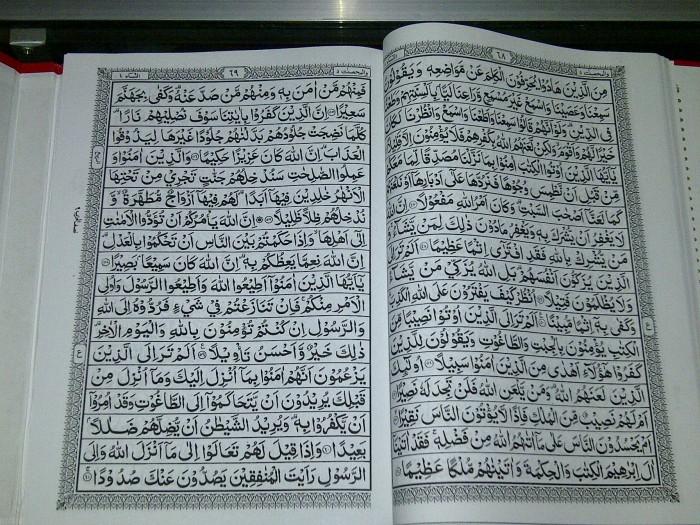 والمحصنت ٥
٦٨
مِنَ الَّذِيْنَ هَادُوْا يُحَرِّفُوْنَ الْكَلِمَ عَنْ مَّوَاضِعِهٖ وَيَقُوْلُوْنَ
سَمِعْنَا وَعَصَيْنَا وَاسْمَعْ غَيْرَ مُسْمَعٍ وَّرَاعِنَا لَيًّۢا بِاَلْسِنَتِهِمْ وَطَعْنًا
فِى الدِّيْنِ وَلَوْ اَنَّهُمْ قَالُوْا سَمِعْنَا وَاَطَعْنَا وَاسْمَعْ وَانْظُرْنَا لَكَانَ
خَيْرًا لَّهُمْ وَاَقْوَمَ وَلٰكِنْ لَّعَنَهُمُ اللّٰهُ بِكُفْرِهِمْ فَلَا يُؤْمِنُوْنَ اِلَّا
يٰٓاَيُّهَا الَّذِيْنَ اُوْتُوا الْكِتٰبَ اٰمِنُوْا بِمَا نَزَّلْنَا مُصَدِّقًا لِّمَا مَعَكُمْ
مِّنْ قَبْلِ اَنْ نَّطْمِسَ وُجُوْهًا فَنَرُدَّهَا عَلٰٓى اَدْبَارِهَآ اَوْ نَلْعَنَهُمْ
كَمَا لَعَنَّآ اَصْحٰبَ السَّبْتِ وَكَانَ اَمْرُ اللّٰهِ مَفْعُوْلًا ۝ اِنَّ اللّٰهَ
لَا يَغْفِرُ اَنْ يُّشْرَكَ بِهٖ وَيَغْفِرُ مَا دُوْنَ ذٰلِكَ لِمَنْ يَّشَآءُ
وَمَنْ يُّشْرِكْ بِاللّٰهِ فَقَدِ افْتَرٰٓى اِثْمًا عَظِيْمًا ۝ اَلَمْ تَرَ اِلَى
الَّذِيْنَ يُزَكُّوْنَ اَنْفُسَهُمْ بَلِ اللّٰهُ يُزَكِّيْ مَنْ يَّشَآءُ
وَلَا يُظْلَمُوْنَ فَتِيْلًا ۝ اُنْظُرْ كَيْفَ يَفْتَرُوْنَ عَلَى اللّٰهِ الْكَذِبَ
وَكَفٰى بِهٖٓ اِثْمًا مُّبِيْنًا ۝ اَلَمْ تَرَ اِلَى الَّذِيْنَ اُوْتُوْا نَصِيْبًا مِّنَ
الْكِتٰبِ يُؤْمِنُوْنَ بِالْجِبْتِ وَالطَّاغُوْتِ وَيَقُوْلُوْنَ لِلَّذِيْنَ
كَفَرُوْا هٰٓؤُلَآءِ اَهْدٰى مِنَ الَّذِيْنَ اٰمَنُوْا سَبِيْلًا ۝ اُولٰٓئِكَ
الَّذِيْنَ لَعَنَهُمُ اللّٰهُ وَمَنْ يَّلْعَنِ اللّٰهُ فَلَنْ تَجِدَ لَهٗ نَصِيْرًا
اَمْ لَهُمْ نَصِيْبٌ مِّنَ الْمُلْكِ فَاِذًا لَّا يُؤْتُوْنَ النَّاسَ نَقِيْرًا
اَمْ يَحْسُدُوْنَ النَّاسَ عَلٰى مَآ اٰتٰىهُمُ اللّٰهُ مِنْ فَضْلِهٖ فَقَدْ اٰتَيْنَآ
اٰلَ اِبْرٰهِيْمَ الْكِتٰبَ وَالْحِكْمَةَ وَاٰتَيْنٰهُمْ مُّلْكًا عَظِيْمًا ۝
والمحصنت ٥
٦٩
النسآء ٤
فَمِنْهُمْ مَّنْ اٰمَنَ بِهٖ وَمِنْهُمْ مَّنْ صَدَّ عَنْهُ وَكَفٰى بِجَهَنَّمَ
سَعِيْرًا ۝ اِنَّ الَّذِيْنَ كَفَرُوْا بِاٰيٰتِنَا سَوْفَ نُصْلِيْهِمْ نَارًا
كُلَّمَا نَضِجَتْ جُلُوْدُهُمْ بَدَّلْنٰهُمْ جُلُوْدًا غَيْرَهَا لِيَذُوْقُوا
الْعَذَابَ اِنَّ اللّٰهَ كَانَ عَزِيْزًا حَكِيْمًا ۝ وَالَّذِيْنَ اٰمَنُوْا وَ
عَمِلُوا الصّٰلِحٰتِ سَنُدْخِلُهُمْ جَنّٰتٍ تَجْرِيْ مِنْ تَحْتِهَا
الْاَنْهٰرُ خٰلِدِيْنَ فِيْهَآ اَبَدًا لَهُمْ فِيْهَآ اَزْوَاجٌ مُّطَهَّرَةٌ وَّ
نُدْخِلُهُمْ ظِلًّا ظَلِيْلًا ۝ اِنَّ اللّٰهَ يَاْمُرُكُمْ اَنْ تُؤَدُّوا الْاَمٰنٰتِ
اِلٰٓى اَهْلِهَا وَاِذَا حَكَمْتُمْ بَيْنَ النَّاسِ اَنْ تَحْكُمُوْا بِالْعَدْلِ
اِنَّ اللّٰهَ نِعِمَّا يَعِظُكُمْ بِهٖ اِنَّ اللّٰهَ كَانَ سَمِيْعًۢا بَصِيْرًا ۝
يٰٓاَيُّهَا الَّذِيْنَ اٰمَنُوْٓا اَطِيْعُوا اللّٰهَ وَاَطِيْعُوا الرَّسُوْلَ وَاُولِى
الْاَمْرِ مِنْكُمْ فَاِنْ تَنَازَعْتُمْ فِيْ شَيْءٍ فَرُدُّوْهُ اِلَى اللّٰهِ
وَالرَّسُوْلِ اِنْ كُنْتُمْ تُؤْمِنُوْنَ بِاللّٰهِ وَالْيَوْمِ الْاٰخِرِ
ذٰلِكَ خَيْرٌ وَّاَحْسَنُ تَاْوِيْلًا ۝ اَلَمْ تَرَ اِلَى الَّذِيْنَ
يَزْعُمُوْنَ اَنَّهُمْ اٰمَنُوْا بِمَآ اُنْزِلَ اِلَيْكَ وَمَآ اُنْزِلَ مِنْ
قَبْلِكَ يُرِيْدُوْنَ اَنْ يَّتَحَاكَمُوْٓا اِلَى الطَّاغُوْتِ وَقَدْ اُمِرُوْٓا
اَنْ يَّكْفُرُوْا بِهٖ وَيُرِيْدُ الشَّيْطٰنُ اَنْ يُّضِلَّهُمْ ضَلٰلًاۢ
بَعِيْدًا ۝ وَاِذَا قِيْلَ لَهُمْ تَعَالَوْا اِلٰى مَآ اَنْزَلَ اللّٰهُ وَاِلَى
الرَّسُوْلِ رَاَيْتَ الْمُنٰفِقِيْنَ يَصُدُّوْنَ عَنْكَ صُدُوْدًا ۝